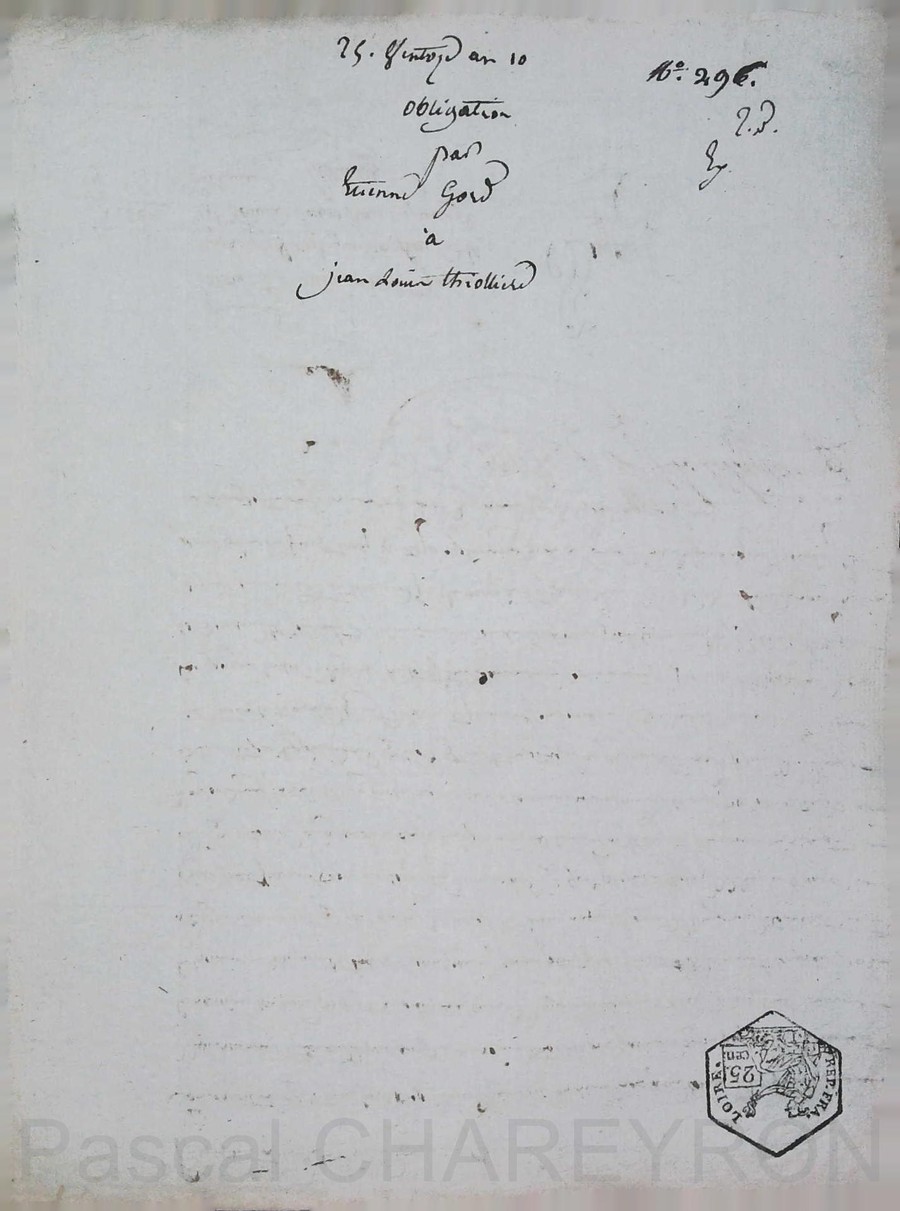 25. Ventose an 10
N° 296.
obligation
par
Etienne Goré
à
jean Louis thiolliere
LOIRE.
REP. FRA.
25.
cen.
Pascal CHAREYRON